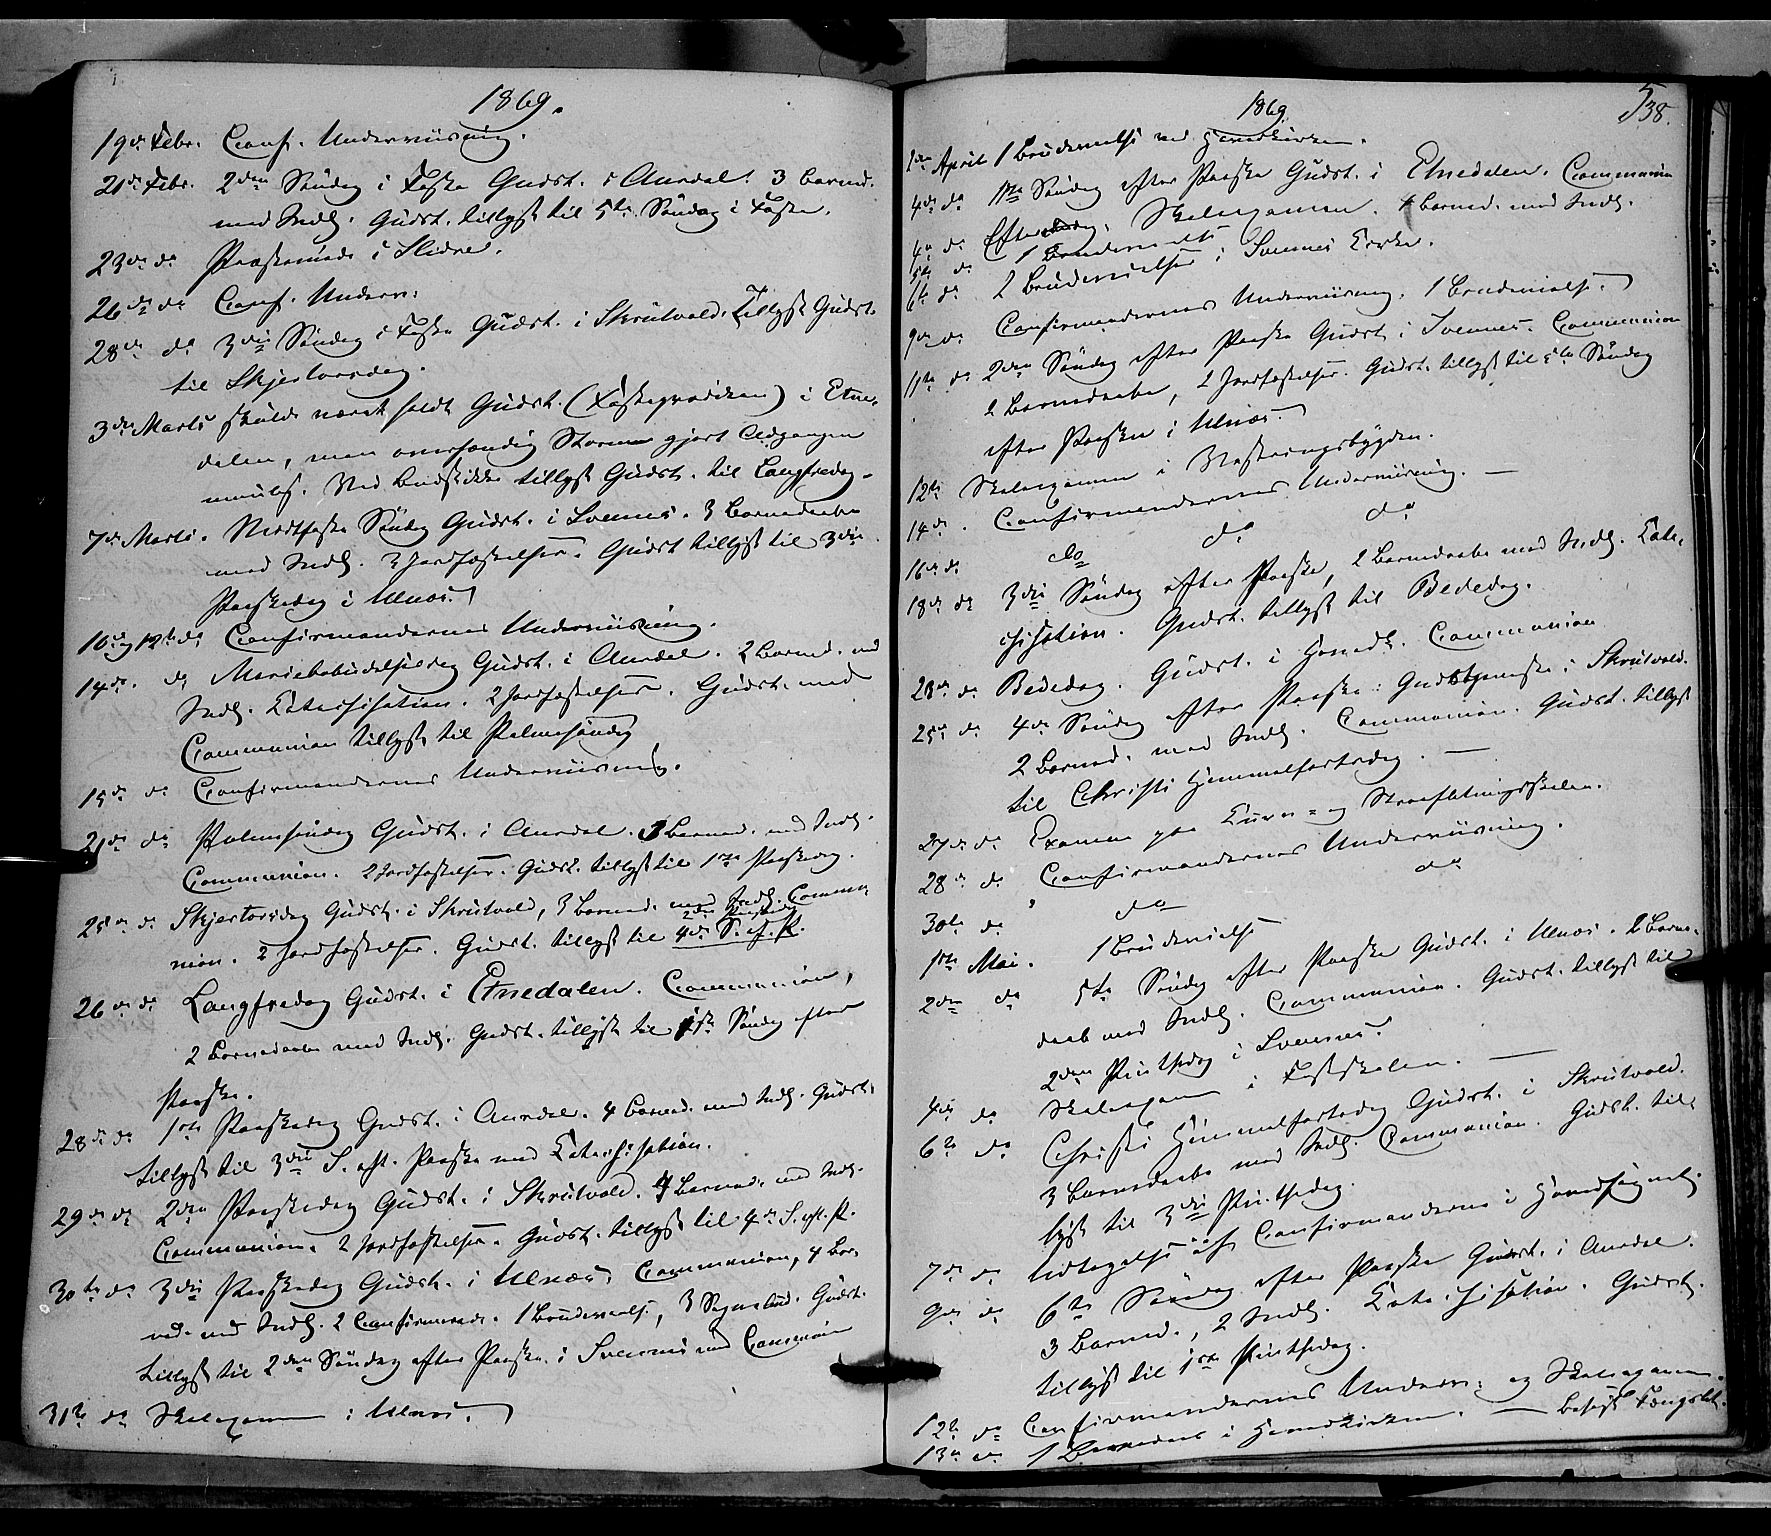 1869.
19de Febr. Conf. Underviisning.
21de Febr. 2den Søndag i Faste Gudst. i Aurdal. 3 Barned.
med Indl. Gudst. tillyst til 5te Søndag i Faste.
23de do Præstemøde i Slidre.
26de do Conf. Underv:
28de do 3die Søndag i Faste Gudst. i Skrutvold. Tillyst Gudst.
til Skjertorsdag.
3die Marts skulde været holdt Gudst. (Fasteprædiken) i Etne-
dalen, men overhændig Storm gjort Adgangen
umulig. Ved Budstikke tillyst Gudst. til Langfredag.
7de Marts. Midtfaste Søndag Gudst. i Svennes. 3 Barnedaabe
med Indl. 3 Jordfæstelser. Gudst tillyst til 3die
Paaskedag i Ulnæs.
10de og 12te do Confirmandernes Underviisning.
14de. do Mariebebudelsesdag Gudst. i Aurdal. 2 Barned. med
Indl. Katechisation. 2 Jordfæstelser. Gudst. med
Communion tillyst til Palmesøndag
15de do Confirmandernes Underviisning.
21de do Palmesøndag Gudst. i Aurdal. 3 Barned. med Indl.
Communion. 2 Jordfæstelser. Gudst. tillyst til 1ste Paaskedag.
25de do Skjertorsdag Gudst. i Skrutvold, 3 Barned. med Indl. Commu-
2den Paaskedag
nion. 2 Jordfæstelser. Gudst. tillyst til 4de S. ef. P.
26de do Langfredag Gudst. i Etnedalen. Communion,
2 Barnedaabe med Indl. Gudst. tillyst til 1ste Søndag efter
Paaske.
28de do 1ste Paaskedag Gudst. i Aurdal. 4 Barned. med Indl. Gudst.
tillyst til 3die S. eft. Paaske med Katechisation.
29de do 2den Paaskedag Gudst. i Skrutvold. 4 Barned. med Indl.
Communion. 2 Jordfæstelser. Gudst. tillyst til 4de S. eft. P.
30te do 3die Paaskedag Gudst. i Ulnæs. Communion, 4 Bar-
ned. med Indl. 2 Confirmerede. 1 Brudevielse, 3 Gudst.
tillyst til 2den Søndag efter Paaske i Svennes med Communion
31te do Skoleexamen i Ulnæs.
538.
1869
1ste April 1 Brudevielse ved Hovedkirken.
4de do 1ste Søndag efter Paaske Gudst. i Etnedalen. Communion
4 Barned. med Indl.
4de do Skoleexamen.
5te do 1 Brudevielse
6te do 2 Brudevielser i Svennes Kirke.
9de do Confirmandernes Underviisning. 1 Brudevielse.
11te do 2den Søndag efter Paaske Gudst. i Svennes. Communion
2 Barnedaabe, 2 Jordfæstelser. Gudst. tillyst til 5te Søndag
efter Paaske i Ulnæs
12te Skoleexamen i
14de. Confirmandernes Underviisning.
16de do do do do
18de do 3die Søndag efter Paaske, 2 Barnedaabe med Indl. Kate-
chisation. Gudst. tillyst til Bededag.
23de do Bededag. Gudst. i Hovedk. Communion
25de do 4de Søndag efter Paaske: Gudstjeneste i Skrutvold.
2 Barned. med Indl. Communion. Gudst. tillyst
til Christi Himmelfartsdag.
27de do Examen paa
28de do Confirmandernes Underviisning.
30te do do do
1ste Mai. 1 Brudevielse
2den do 5te Søndag efter Paaske Gudst. i Ulnæs. 2 Barne-
daab med Indl. Communion. Gudst. tillyst til
2den Pintsedag i Svennes.
4de do Skoleexam i Fastskolen.
6te do Christi Himmelfartsdag Gudst. i Skrutvold.
3 Barnedaabe med Indl. Communion. Gudst. til-
lyst til 3die Pintsedag.
7de do Udtagelse af Confirmanderne i Hovedsognet.
9de do 6te Søndag efter Paaske Gudst. i Aurdal.
3 Barned., 2 Indl. Katechisation. Gudst.
tillyst til 1ste Pintsedag.
12te do Confirmandernes Underv. og Skoleexamen.
13de do 1 i Hovedkirken. — Besøgt Fængslet.